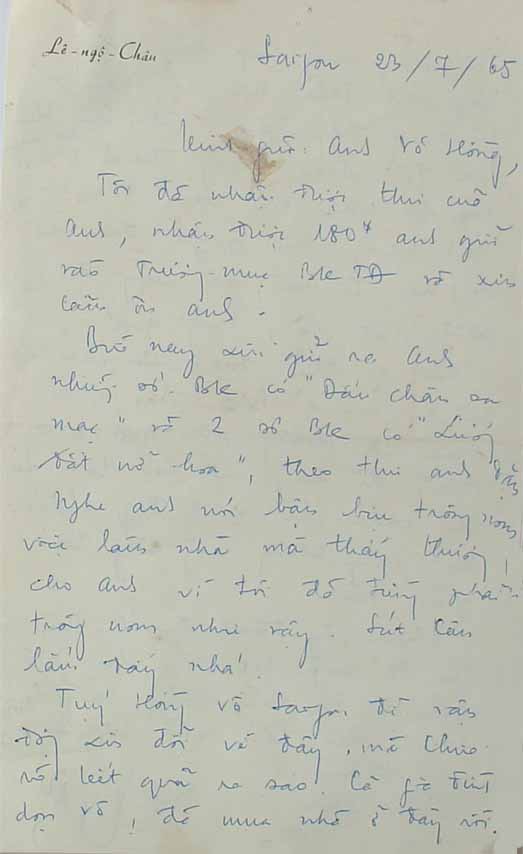 Lê-ngộ-Châu
Saigon 23/7/65
Kính gửi anh Võ Hồng,
Tôi đã nhận được thư của
anh, nhận được 180đ anh gửi
vào trương mục BK TĐ và xin
cảm ơn anh.
Bữ nay xin gửi ra anh
những số BK có "Dấu chân sa
mạc" và 2 số BK có "Lướ
đất nở hoa", theo thư anh dặn
Nghe anh nói bận bịu trông nom
việc làm nhà mà thấy thương
cho anh vì tôi đã từng phải
trông nom như vậy. Sút cân
lắm đấy nhá.
Tuý Hồng vô Saigon để vận
động xin đổi về đây, mà chưa
rõ kết quả ra sao. Cả gia đình
dọn vô, đã mua nhà ở đây rồi.